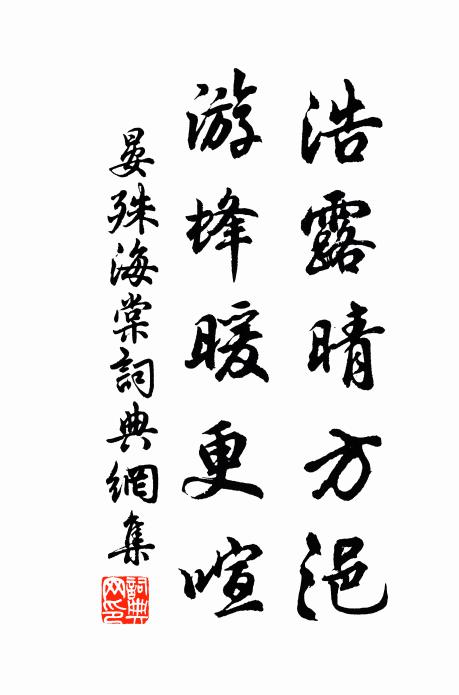 浩露晴方浥
游蜂暖更喧
晏殊海棠詞典網集
詞典網印